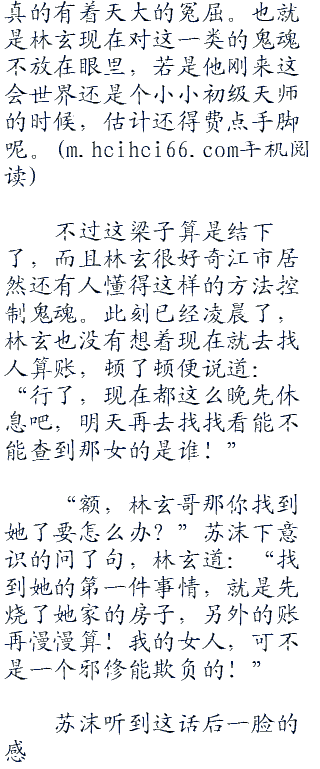 真的有着天大的冤屈。也就
是林玄现在对这一类的鬼魂
不放在眼里，若是他刚来这
会世界还是个小小初级天师
的时候，估计还得费点手脚
呢。(m.hcihci66.com手机阅
读)
不过这梁子算是结下
了，而且林玄很好奇江市居
然还有人懂得这样的方法控
制鬼魂。此刻已经凌晨了，
林玄也没有想着现在就去找
人算账，顿了顿便说道：
“行了，现在都这么晚先休
息吧，明天再去找找看能不
能查到那女的是谁！”
“额，林玄哥那你找到
她了要怎么办？”苏沫下意
识的问了句，林玄道：“找
到她的第一件事情，就是先
烧了她家的房子，另外的账
再慢慢算！我的女人，可不
是一个邪修能欺负的！”
苏沫听到这话后一脸的
感